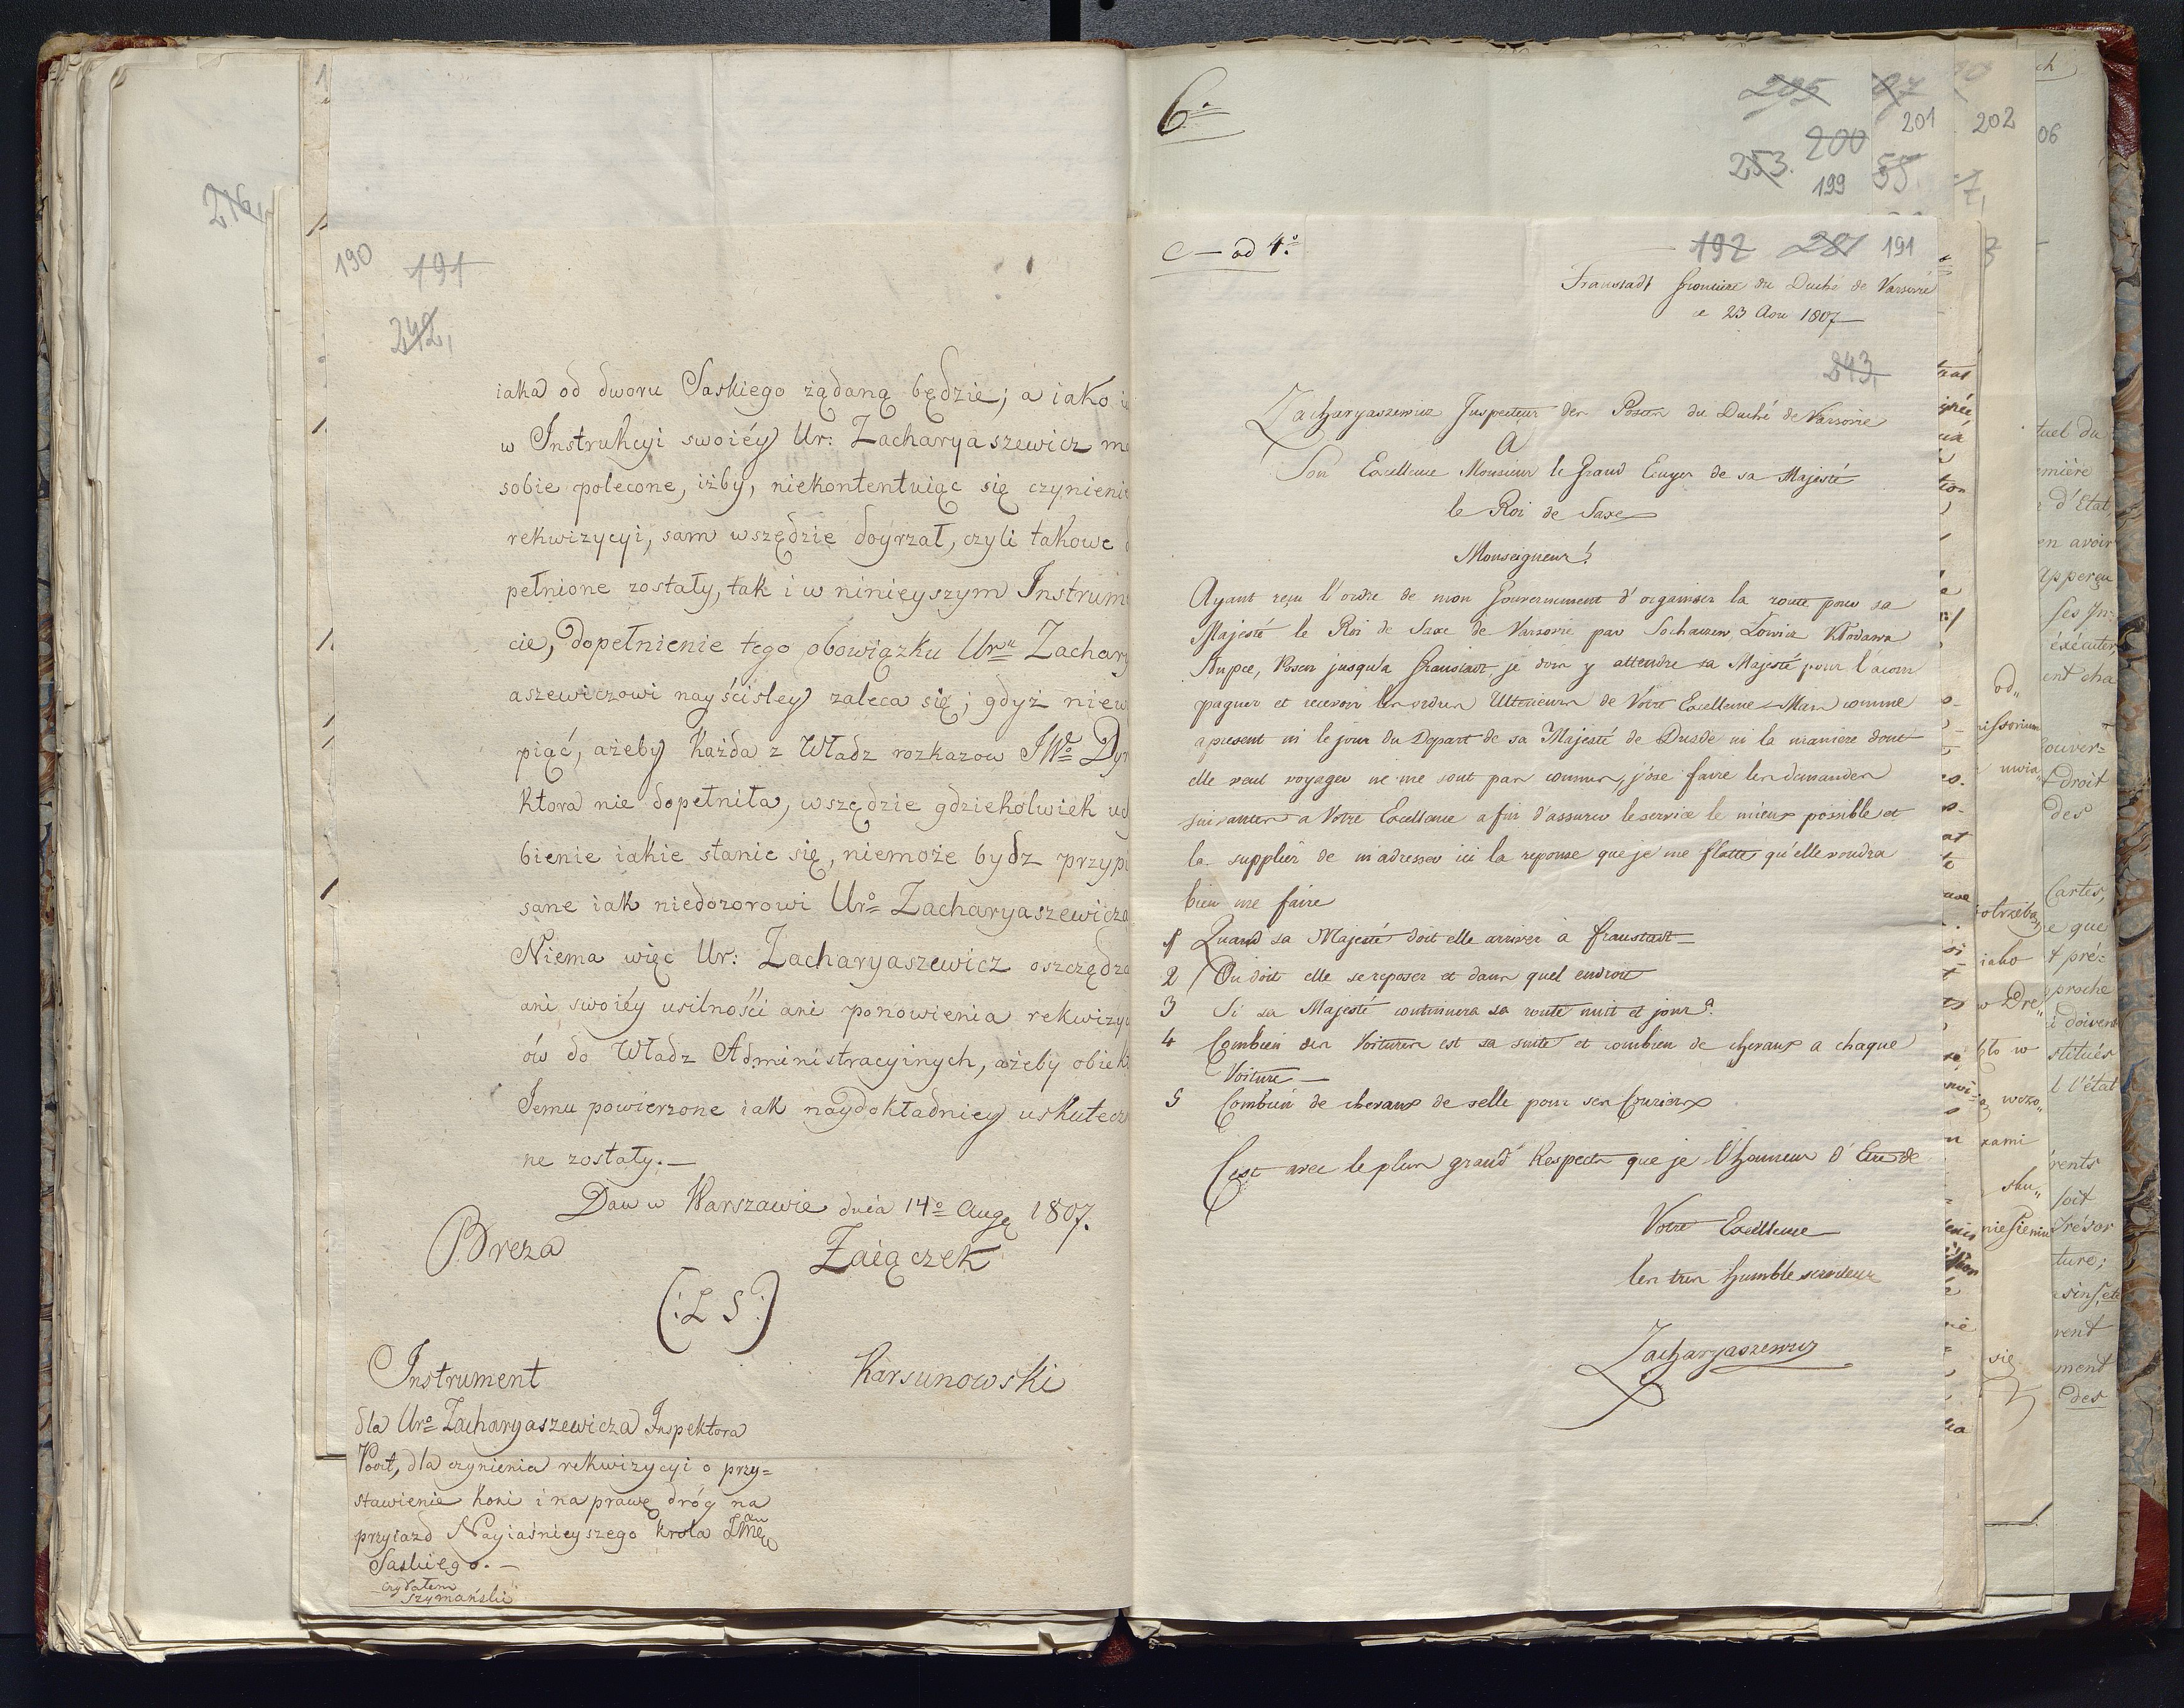 216,
190
191
242,
iaka od dworu Saskiego żądaną będzie; a iako i
w Instrukcyi swoiéy Ur: Zacharyaszewicz m
sobie polecone, iżby, niekontentuiąc się czynieni
rekwizycyi, sam wszędzie doyrzał, czyli takowe
pełnione zostały, tak i w ninieyszym Instrum
cie, dopełnienie tego obowiązku Urᵘ Zachary
aszewiczowi nayściśley zaleca się; gdyż niew
piąć, ażeby każda z Władz rozkazow JWᵒ Dyr
ktora nie dopełniła, wszędzie gdziekolwiek uc
bienie iakie stanie się, niemoże bydz przyp
sane iak niedozorowi Urᵒ Zacharyaszewicza
Niema więc Ur: Zacharyaszewicz oszczędza
ani swoiéy usilności ani ponowienia rekwizyc
ów do Władz Administracyinych, ażeby obiek
Jemu powierzone iak naydokładniey uskutecz
ne zostały. —
Dan w Warszawie dnia 14ᵒ Aug 1807.
Breza Zaiączek
(: L S :)
Instrument Karsunowski
dla Urᵒ Zacharyaszewicza Inspektora
Poczt, dla czynienia rekwizycyi o przy=
stawienie koni i naprawę dróg na
przyiazd Nayiaśnieyszego krola
Saskiego. —
czytałem
Szymański
6ᵃ
205 87
201 202
200
253. 55.
199
06
c — ad 4º
192 281 191
Fraustadt frontière du Duché de Varsovie
ce 23 Aou 1807 —
243,
Zacharyaszewicz Inspecteur des Postes du Duché de Varsovie
A
Son Excellence Monsieur le Grand Ecuyer de sa Majesté
le Roi de Saxe
Monseigneur!
Ayant reçu l'ordre de mon Gouvernement d'organiser la route pour sa
Majesté le Roi de Saxe de Varsovie par Sochaczew, Lowicz Kłodawa
Slupce, Posen jusqu'a Fraustadt je dois y attendre sa Majesté pour l'acom
pagner et recevoir les ordres Ulterieurs de Votre Excellence Mais comme
apresent ni le jour du Depart de sa Majesté de Dresde ni la maniere dont
elle veut voyager ne me sont pas connus, j'ose faire les demandes
suivantes a Votre Excellence a fin d'assurer le service le mieux possible et
la supplier de m'adresser ici la reponse que je me flatte qu'elle voudra
bien me faire
1 Quand sa Majesté doit elle arriver à Fraustadt —
2 Ou doit elle se reposer et dans quel endroit
3 Si sa Majesté continuera sa route nuit et jour?
4 Combien des Voitures est sa suite et combien de chevaux a chaque
Voiture —
5 Combien de chevaux de selle pour ses Couriers
C'est avec le plus grand Respects que je l'honneur d'Etre de
Votre Excellence
les tres humble serviteur
Zacharyaszewicz